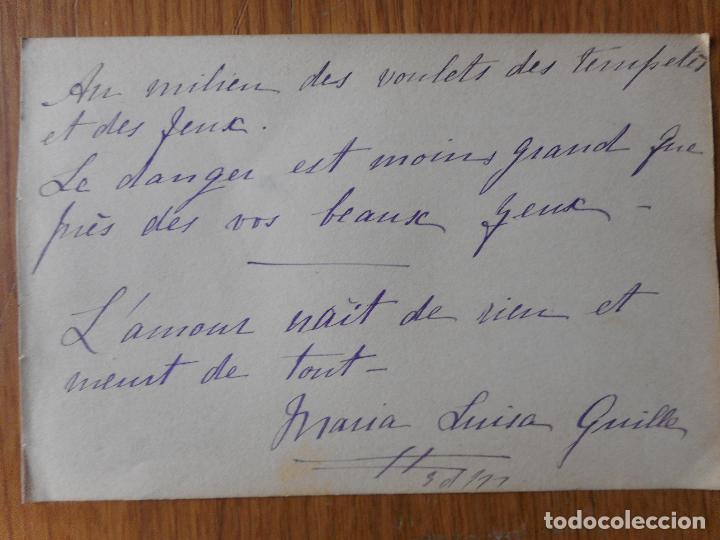 Au milieu des voulets des tempetes
et des feux.
Le danger est moins grand que
près des vos beaux yeux —
L'amour naît de rien et
meurt de tout —
Maria Luisa Guille
todocoleccion.net